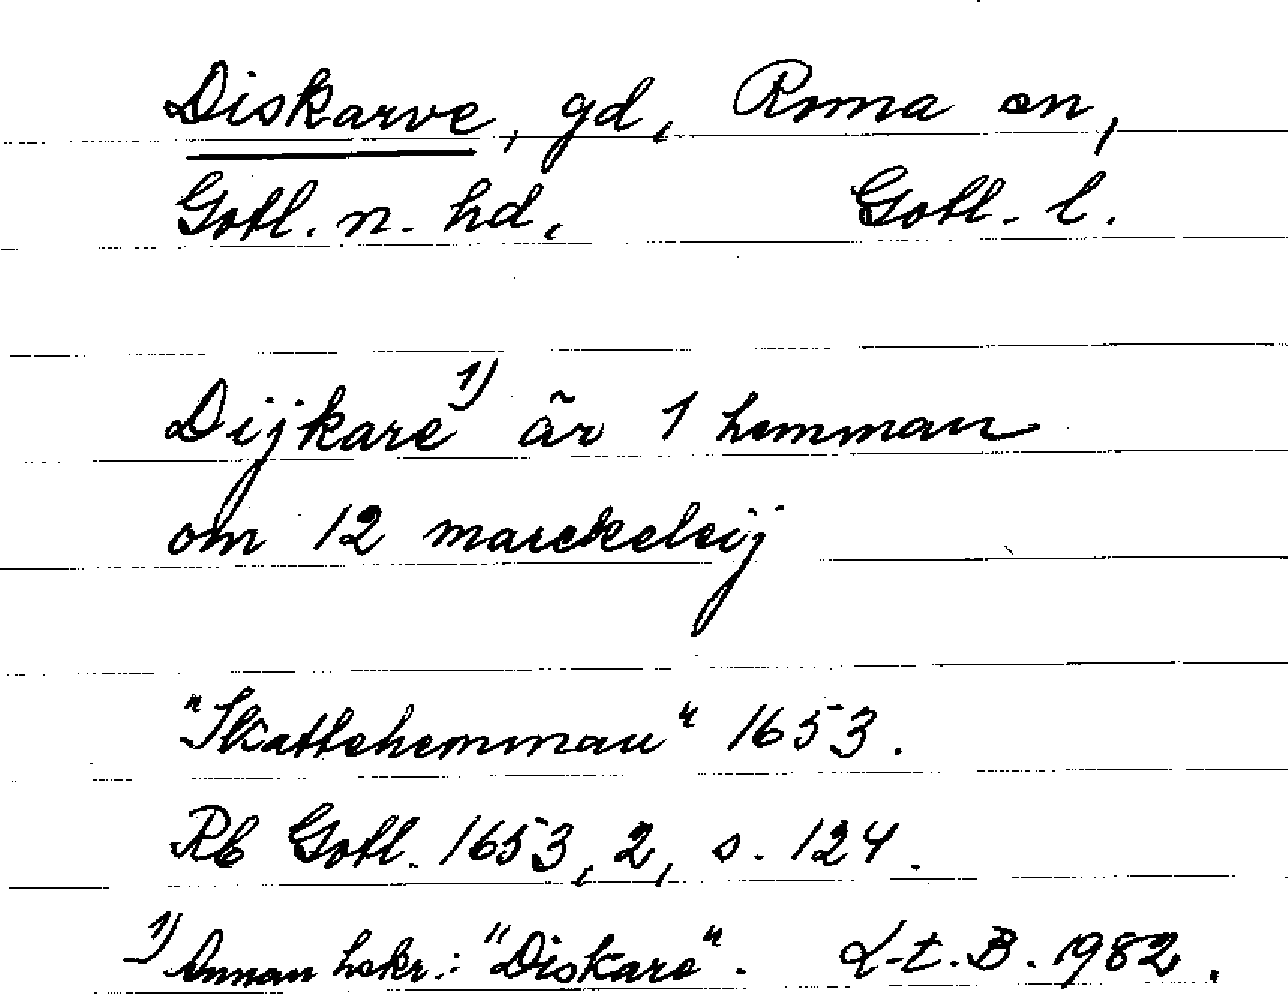 Diskarve, gd, Roma sn,
Gotl. n. hd, Gotl. l.
Dijkare 1) är 1 hemman
om 12 marckeleij
"Skattehemman" 1653.
Rb Gotl. 1653, 2, s. 124.
1) Annan hskr.: "Diskare". L-t. B. 1982.